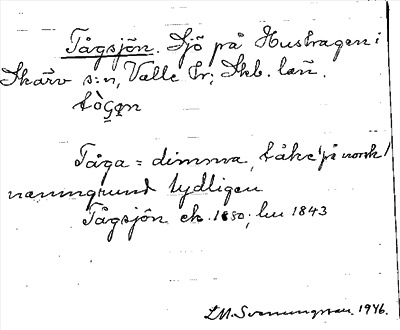 Tågsjön. Sjö på Hustragen i
Skärv s:n, Valle hr; Skb. län.
Tåga = dimma, tåke (på norsk)
namngrund tydligen
Tågsjön ek. 1880; lm 1843
1946.